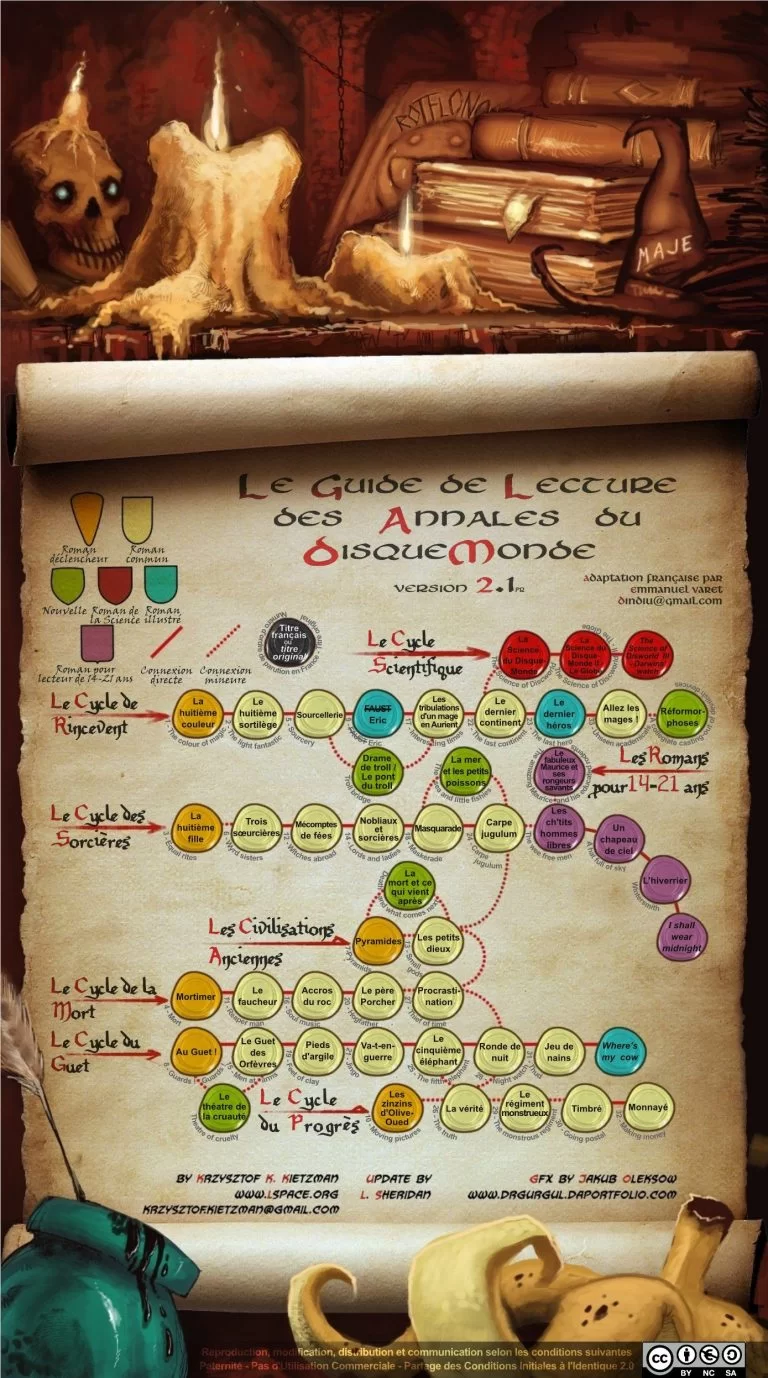 ROTFLONO
MAJE
Le Guide de Lecture
des Annales du
DisqueMonde
version 2.1FR
adaptation française par
emmanuel varet
dindiu@gmail.com
Roman
déclencheur
Roman
commun
Nouvelle
Roman de
la Science
Roman
illustré
Roman pour
lecteur de 14-21 ans
Connexion
directe
Connexion
mineure
Titre
français
ou
titre
original
Le Cycle
Scientifique
La
Science
du Disque-
Monde
La
Science
du Disque-
Monde II
Le Globe
The
Science of
Discworld III
- Darwin's
watch
Le Cycle de
Rincevent
La
huitième
couleur
The colour of magic
Le
huitième
sortilège
2 - The light fantastic
Sourcellerie
5 - Sourcery
FAUST
Eric
Les
tribulations
d'un mage
en Aurient
17 - Interesting times
Le
dernier
continent
22 - The last continent
Le
dernier
héros
The last hero
Allez les
mages !
Unseen academicals
Réformor-
phoses
Drame
de troll /
Le pont
du troll
Troll bridge
La mer
et les petits
poissons
The sea and little fishes
Le
fabuleux
Maurice et
ses
rongeurs
savants
Les Romans
pour 14-21 ans
Le Cycle des
Sorcières
La
huitième
fille
3 - Equal rites
Trois
sœurcières
6 - Wyrd sisters
Mécomptes
de fées
12 - Witches abroad
Nobliaux
et
sorcières
14 - Lords and ladies
Masquarade
18 - Maskerade
Carpe
jugulum
24 - Carpe
jugulum
Les
ch'tits
hommes
libres
The wee free men
Un
chapeau
de ciel
A hat full of sky
L'hiverrier
Wintersmith
I shall
wear
midnight
La
mort et ce
qui vient
après
Death and what comes next
Les Civilisations
Anciennes
Pyramides
7 - Pyramids
Les petits
dieux
13 - Small
gods
Le Cycle de la
Mort
Mortimer
4 - Mort
Le
faucheur
11 - Reaper man
Accros
du roc
16 - Soul music
Le père
Porcher
20 - Hogfather
Procrasti-
nation
27 - Thief of time
Le Cycle du
Guet
Au Guet !
8 - Guards ! Guards !
Le Guet
des
Orfèvres
15 - Men at arms
Pieds
d'argile
19 - Feet of clay
Va-t-en-
guerre
21 - Jingo
Le
cinquième
éléphant
25 - The fifth elephant
Ronde de
nuit
28 - Night watch
Jeu de
nains
Thud
Where's
my cow
Le
théatre de
la cruauté
Theatre of cruelty
Le Cycle
du Progrès
Les
zinzins
d'Olive-
Oued
10 - Moving pictures
La vérité
26 - The truth
Le
régiment
monstrueux
29 - The monstrous regiment
Timbré
30 - Going postal
Monnayé
32 - Making money
by Krzysztof K. Kietzman
www.lspace.org
krzysztof.kietzman@gmail.com
update by
L. Sheridan
GFX by Jakub Oleksow
www.drgurgul.daportfolio.com
Reproduction, modification, distribution et communication selon les conditions suivantes
Paternité - Pas d'Utilisation Commerciale - Partage des Conditions Initiales à l'Identique 2.0
cc
BY NC SA